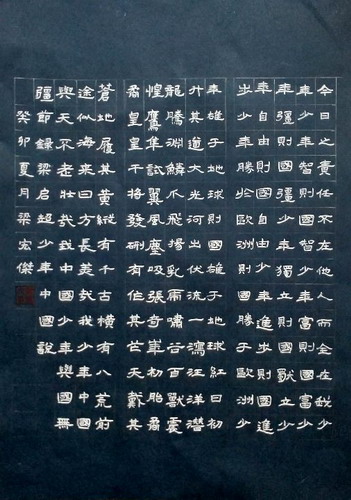 今日之責任不在他人而全在我少
年少年智則國智少年富則國富少
年彊則國彊少年獨立則國獨立少
年自由則國自由少年進步則國進
步少年勝於歐洲則國勝於歐洲少
年雄于地球則國雄于地球紅日初
升其道大光河出伏流一瀉汪洋潛
龍騰淵鱗爪飛揚乳虎嘯谷百獸震
惶鷹隼試翼風塵吸張奇花初胎矞
矞皇皇干將發硎有作其芒天戴其
蒼地履其黃縱有千古橫有八荒前
途似海來日方長美哉我少年中國
與天不老壯哉我中國少年與國無
疆節錄梁启超少年中國說
癸卯夏月梁宏傑